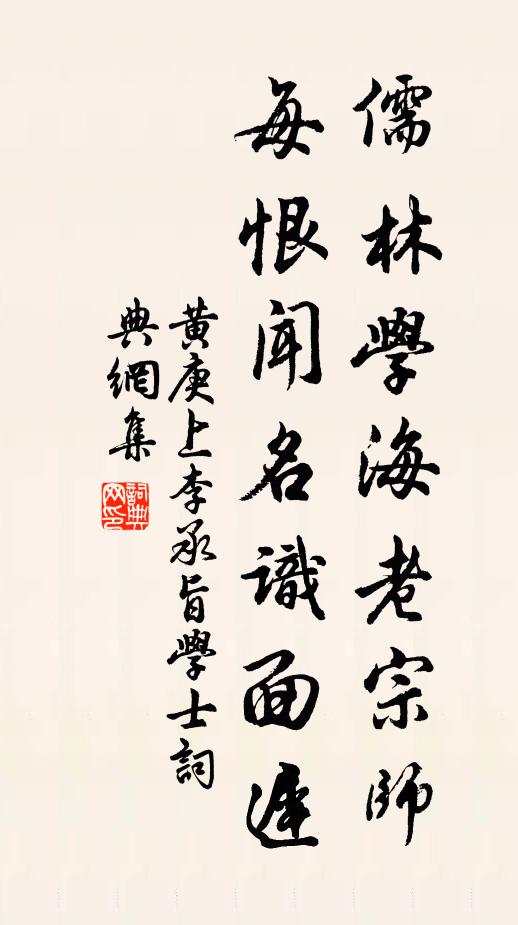 儒林學海老宗師
每恨聞名識面遲
黃庚上李承旨學士詞
典網集
詞典網印